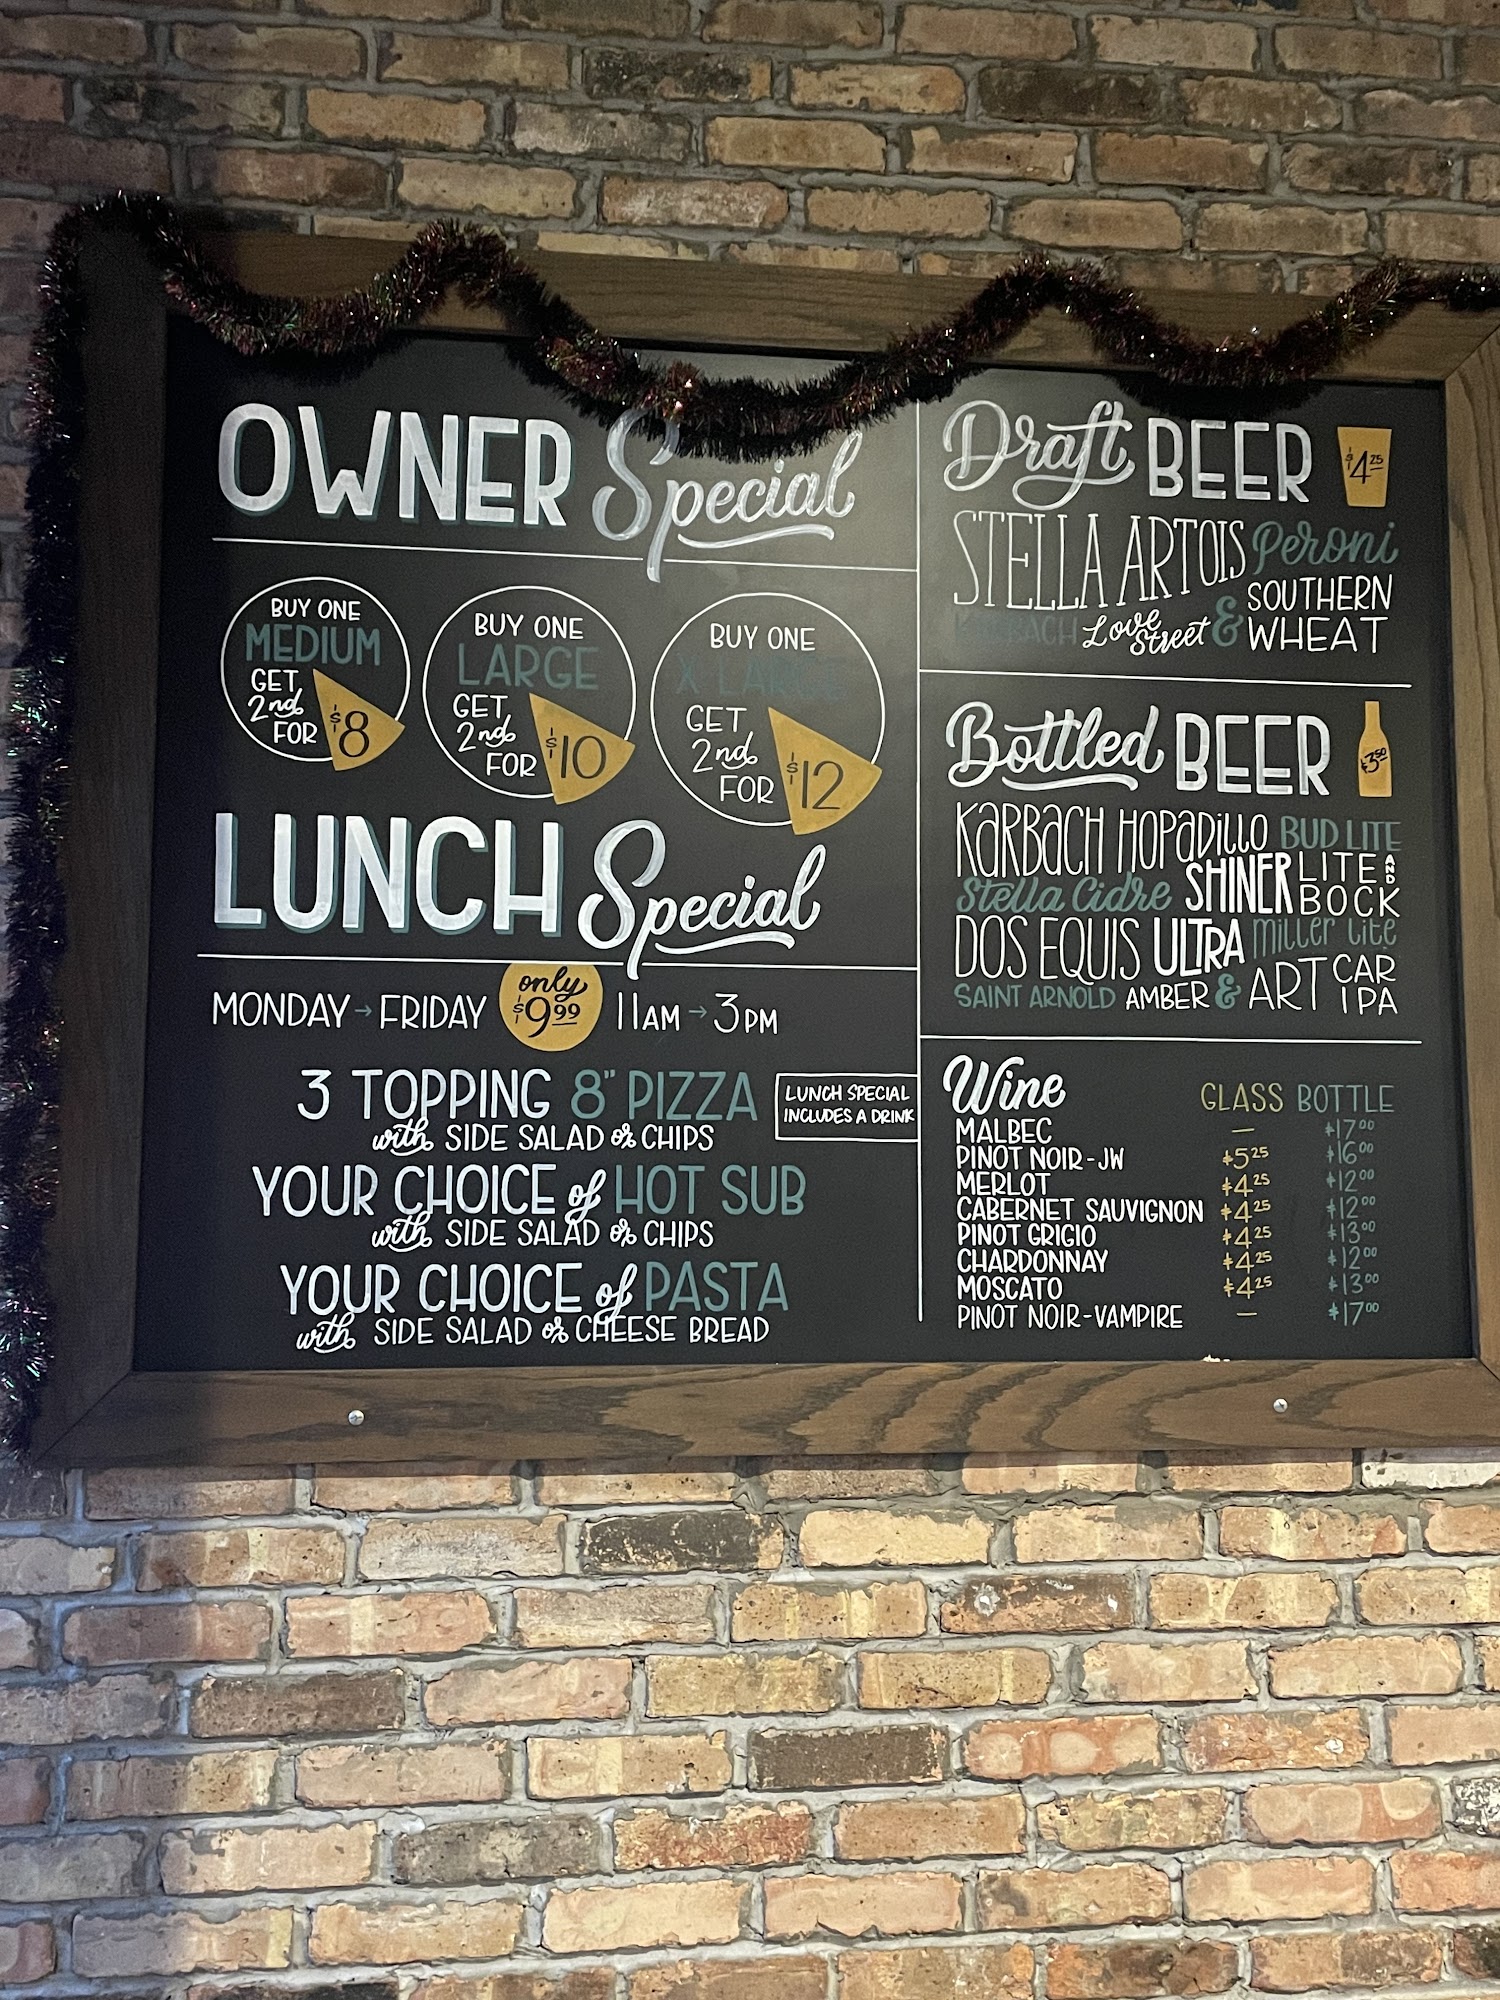 OWNER Special
BUY ONE
MEDIUM
GET
2nd
FOR
$8
BUY ONE
LARGE
GET
2nd
FOR
$10
BUY ONE
X LARGE
GET
2nd
FOR
$12
LUNCH Special
MONDAY → FRIDAY only $9.99 11AM → 3PM
3 TOPPING 8" PIZZA
with SIDE SALAD or CHIPS
LUNCH SPECIAL
INCLUDES A DRINK
YOUR CHOICE of HOT SUB
with SIDE SALAD or CHIPS
YOUR CHOICE of PASTA
with SIDE SALAD or CHEESE BREAD
Draft BEER $4.25
STELLA ARTOIS Peroni
KARBACH Love Street & SOUTHERN WHEAT
Bottled BEER $3.50
KARBACH HOPADILLO BUD LITE
Stella Cidre SHINER LITE AND BOCK
DOS EQUIS ULTRA miller lite
SAINT ARNOLD AMBER & ART CAR IPA
Wine GLASS BOTTLE
MALBEC — $17.00
PINOT NOIR-JW $5.25 $16.00
MERLOT $4.25 $12.00
CABERNET SAUVIGNON $4.25 $12.00
PINOT GRIGIO $4.25 $13.00
CHARDONNAY $4.25 $12.00
MOSCATO $4.25 $13.00
PINOT NOIR-VAMPIRE — $17.00